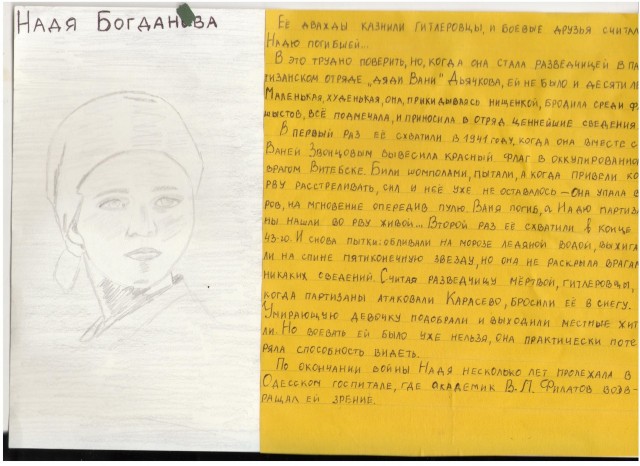 Надя Богданова
Её дважды казнили гитлеровцы, и боевые друзья считал
Надю погибшей...
В это трудно поверить, но, когда она стала разведчицей в па
тизанском отряде „дяди Вани" Дьячкова, ей не было и десяти ле
Маленькая, худенькая, она, прикидываясь нищенкой, бродила среди ф
шистов, всё подмечала, и приносила в отряд ценнейшие сведения
В первый раз её схватили в 1941 году, когда она вместе с
Ваней Звонцовым вывесила красный флаг в оккупированно
врагом Витебске. Били шомполами, пытали, а когда привели ко
рву расстреливать, сил у неё уже не оставалось – она упала в
ров, на мгновение опередив пулю. Ваня погиб, а Надю партиз
ны нашли во рву живой... Второй раз её схватили в конце
43-го. И снова пытки: обливали на морозе ледяной водой, выжига
ли на спине пятиконечную звезду, но она не раскрыла врага
никаких сведений. Считая разведчицу мёртвой, гитлеровцы,
когда партизаны атаковали Карасево, бросили её в снегу.
Умирающую девочку подобрали и выходили местные жит
ли. Но воевать ей было уже нельзя, она практически поте
ряла способность видеть.
По окончании войны Надя несколько лет пролежала в
Одесском госпитале, где академик В.П. Филатов возв-
ращал ей зрение.